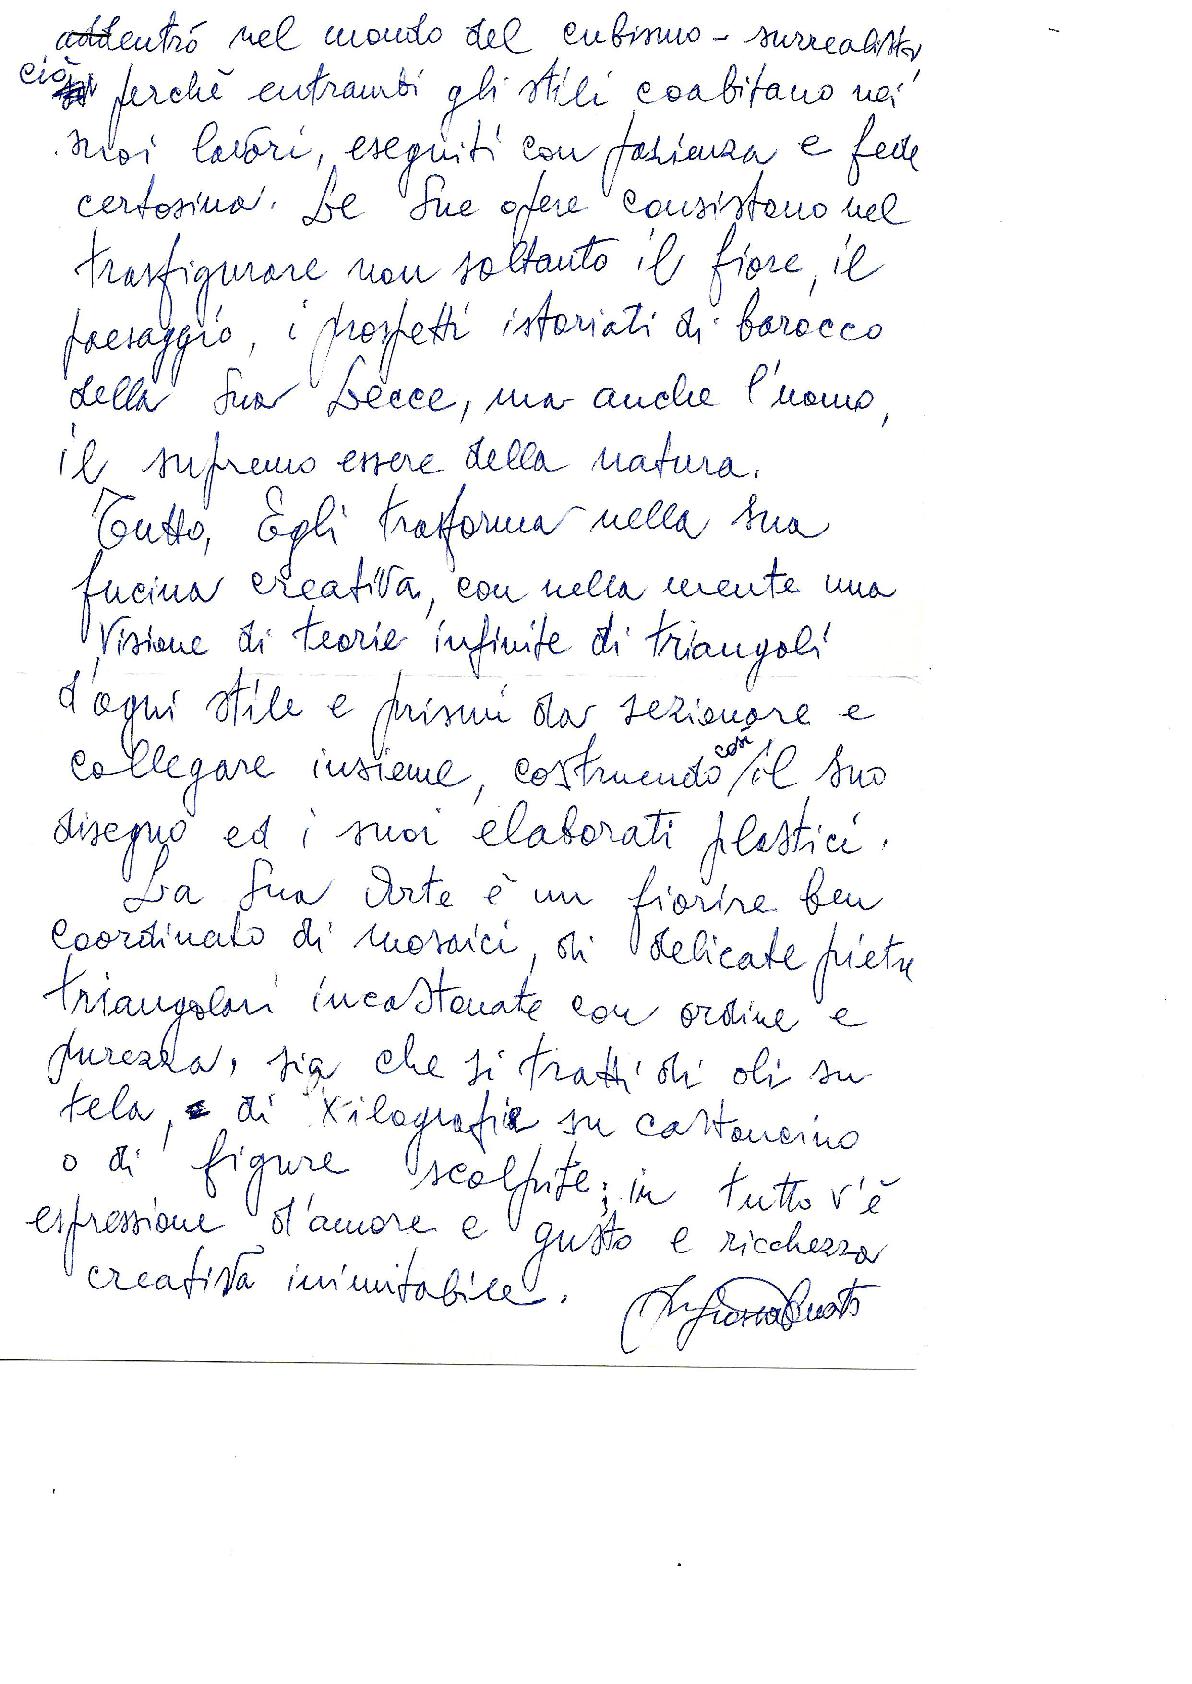 addentrò nel mondo del cubismo - surrealista
ciò perchè entrambi gli stili coabitano nei
suoi lavori, eseguiti con pazienza e fede
certosina. Le Sue opere consistono nel
trasfigurare non soltanto il fiore, il
paesaggio, i prospetti istoriati di barocco
della Sua Lecce, ma anche l'uomo,
il supremo essere della natura.
Tutto, Egli trasforma nella sua
fucina creativa, con nella mente una
visione di teorie infinite di triangoli
d'ogni stile e prismi da sezionare e
collegare insieme, costruendo così il suo
disegno ed i suoi elaborati plastici.
La Sua Arte è un fiorire ben
coordinato di mosaici, di delicate pietre
triangolari incastonate con ordine e
purezza, sia che si tratti di oli su
tela, di xilografie su cartoncino
o di figure scolpite; in tutto v'è
espressione d'amore e gusto e ricchezza
creativa inimitabile.